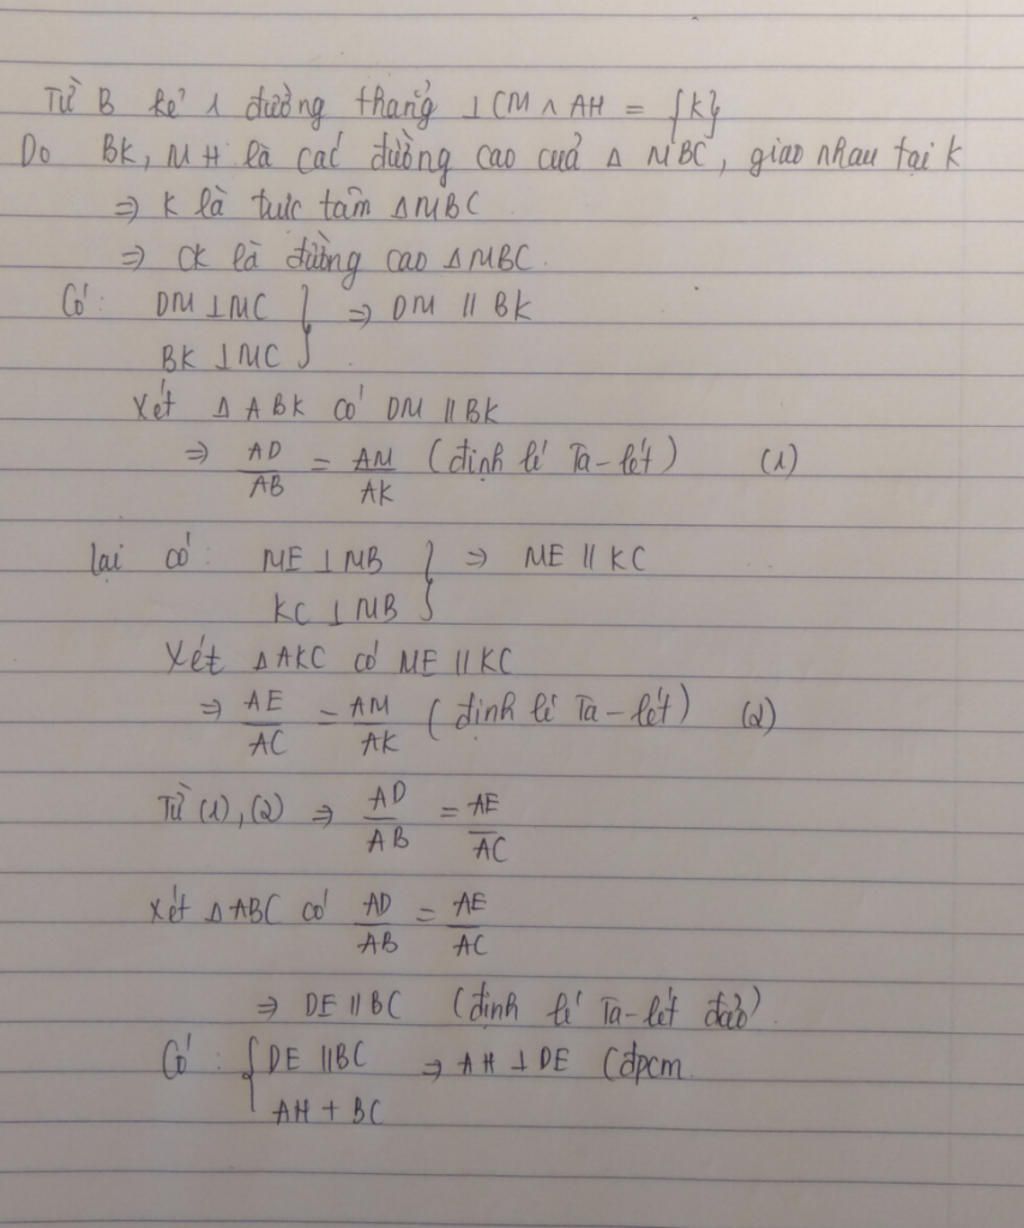 Từ B kẻ 1 đường thẳng ⊥ CM ∧ AH = {K}
Do BK, MH là các đường cao của Δ MBC, giao nhau tại K
⇒ K là trực tâm ΔMBC
⇒ CK là đường cao ΔMBC.
Có: DM ⊥ MC } ⇒ DM // BK
BK ⊥ MC
Xét Δ ABK có DM // BK
⇒ AD/AB = AM/AK (định lí Ta-lét) (1)
lại có: ME ⊥ MB } ⇒ ME // KC
KC ⊥ MB
Xét ΔAKC có ME // KC
⇒ AE/AC = AM/AK (định lí Ta-lét) (2)
Từ (1), (2) ⇒ AD/AB = AE/AC
Xét ΔABC có AD/AB = AE/AC
⇒ DE // BC (định lí Ta-lét đảo).
Có: { DE // BC ⇒ AH ⊥ DE (đpcm
AH + BC